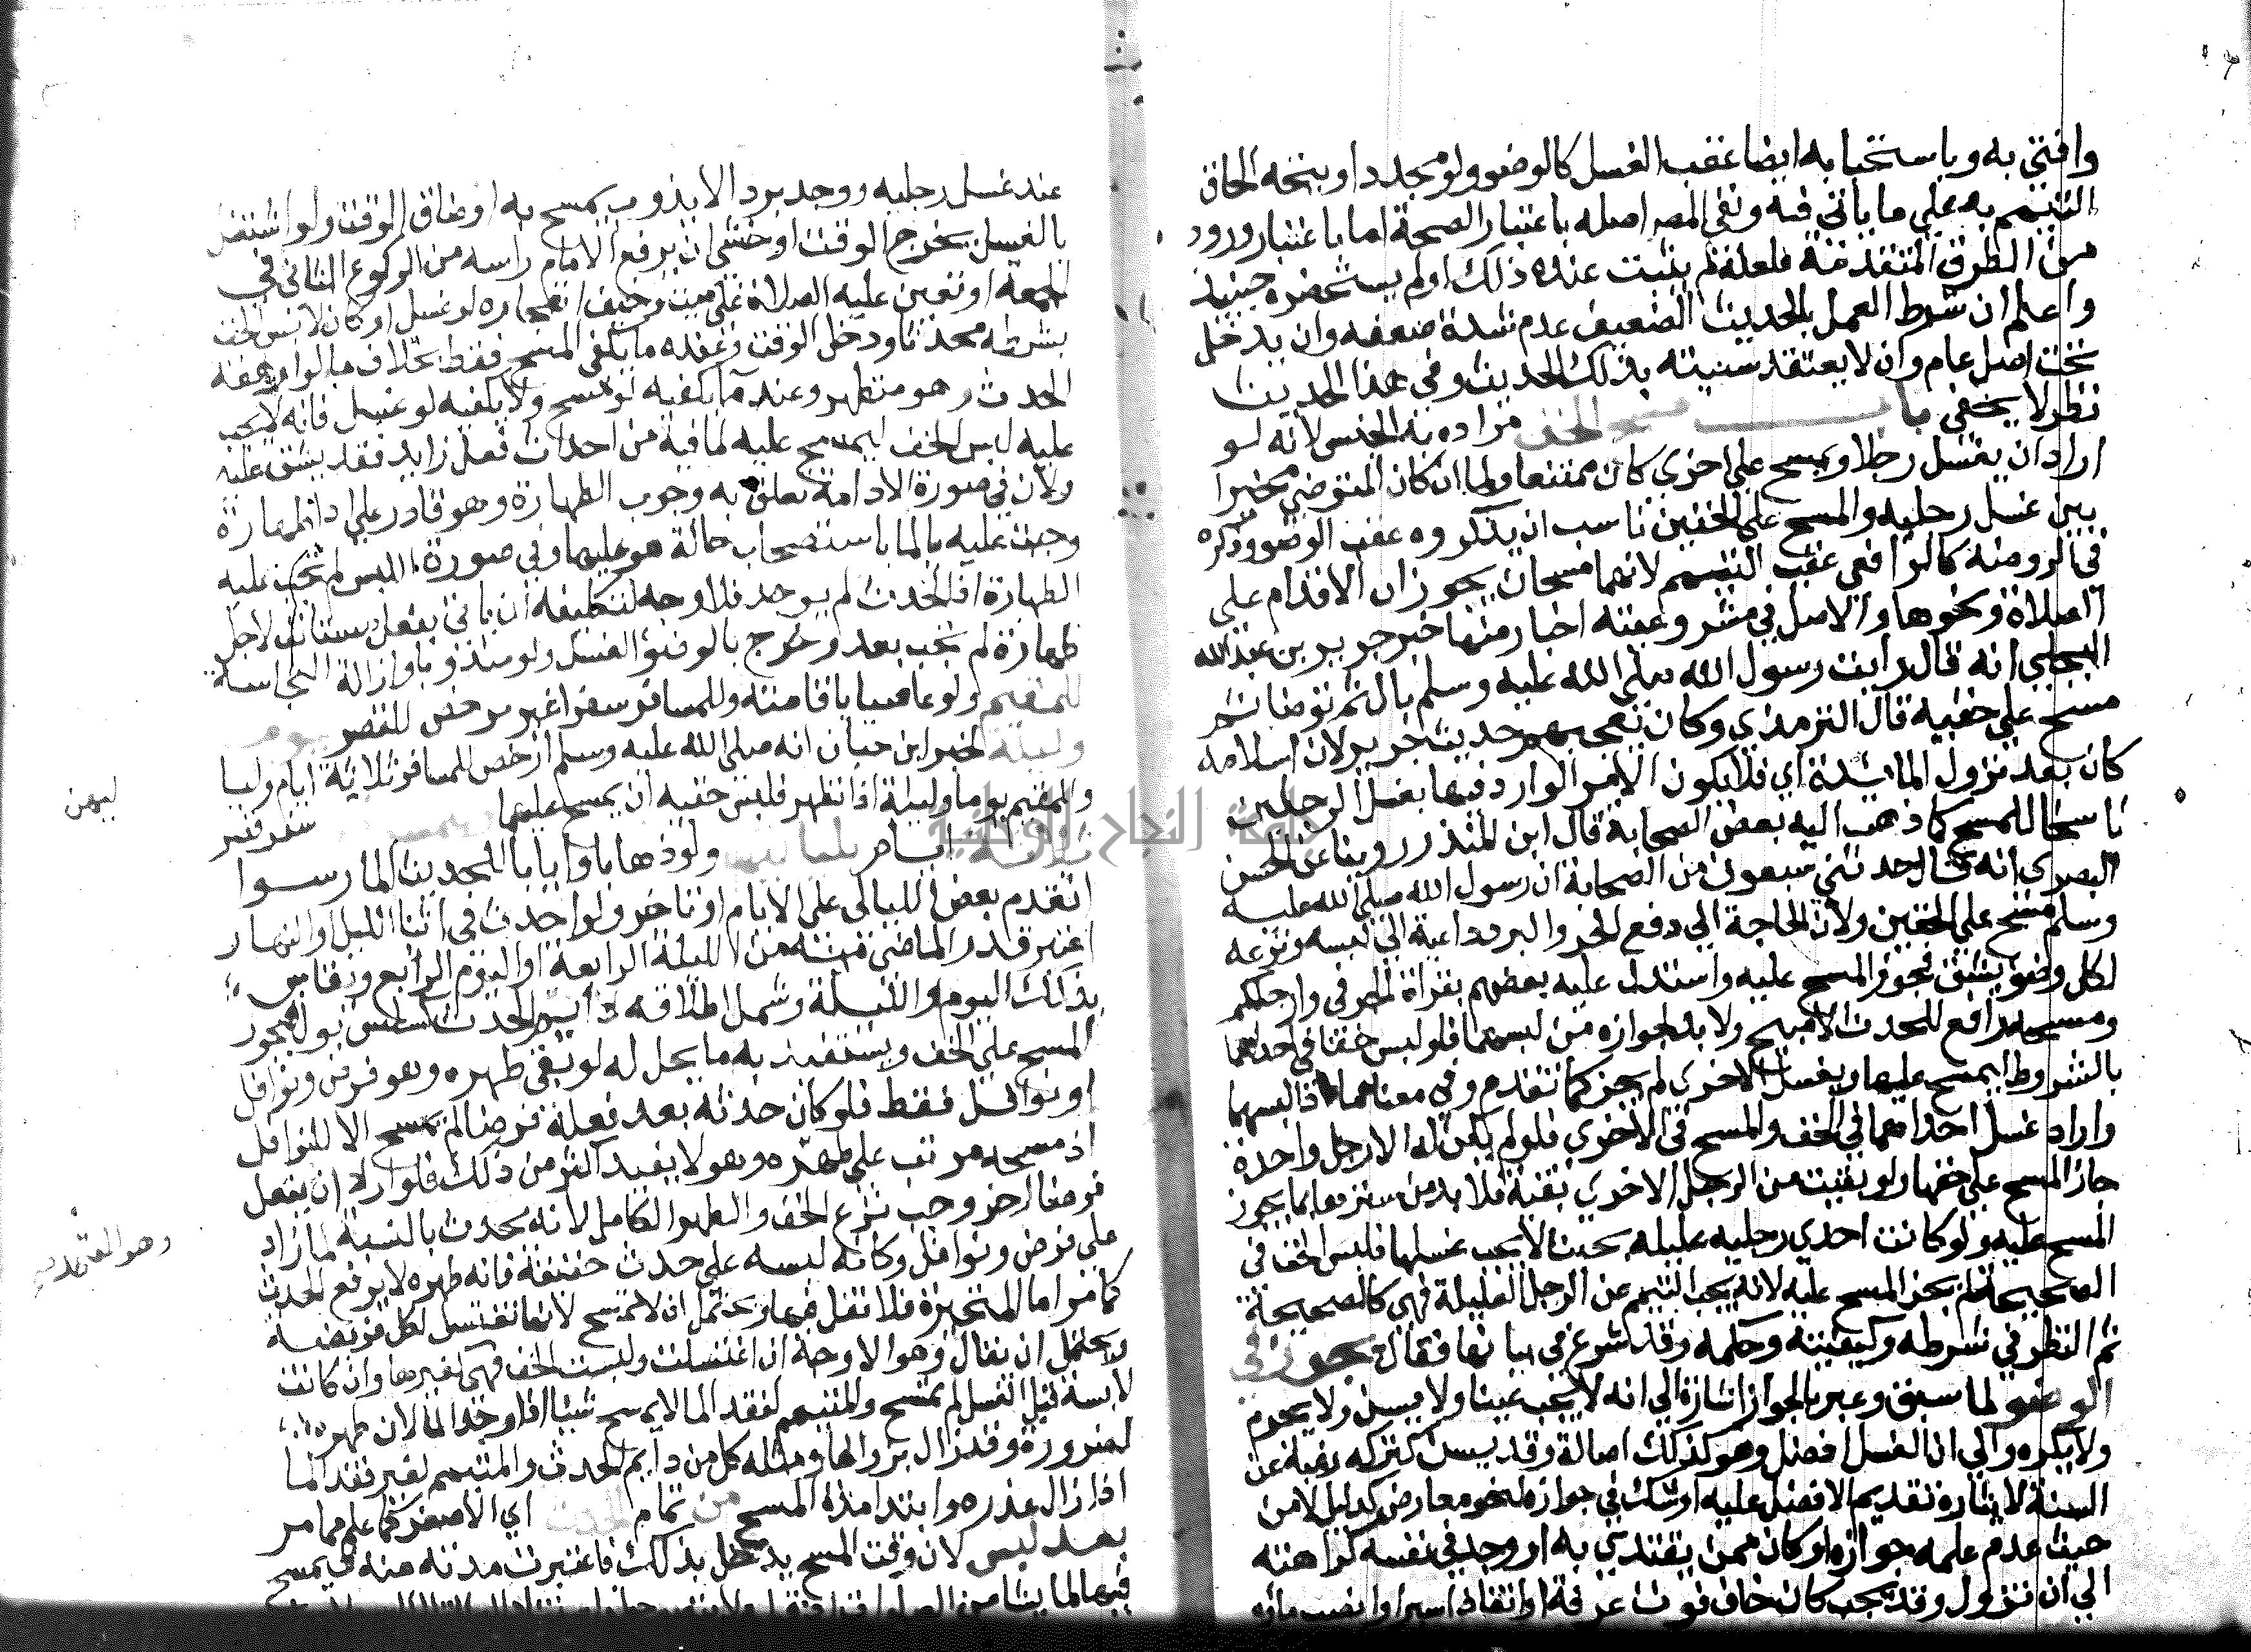 وافتى به وباستحبابه ايضا عقب الغسل كالوضوء ولو مجددا وبنحه الحاق
التيمم به على ما ياتى فيه ونفي المصر اصله باعتبار الصحة اما باعتبار ورود
من الطرق المتقدمة فلعله لم يثبت عنده ذلك او لم يستحضره حينيذ
واعلم ان شرط العمل بالحديث الضعيف عدم شدة ضعفه وان يدخل
تحت اصل عام وان لا يعتقد سنيته بذلك الحديث وفي هذا الحديث
نظر لا يخفى باب مسح الخف مراده به الجنس لانه لو
اراد ان يغسل رجلا ويمسح على اخرى كان ممتنعا ولما ان كان المتوضي مخيرا
بين غسل رجليه والمسح على الخفين ناسب ان يذكروه عقب الوضوء وذكره
في الروضة كالرافعي عقب التيمم لانهما مسحان يجوزان الاقدام على
الصلاة ونحوها والاصل في مشروعيته اخبار منها خبر جرير بن عبد الله
البجلي انه قال رايت رسول الله صلى الله عليه وسلم بال ثم توضا ثم
مسح على خفيه قال الترمذي وكان يعجبهم حديث جرير لان اسلامه
كان بعد نزول المايدة اي فلا يكون الامر الوارد فيها بغسل الرجلين
ناسخا للمسح كما ذهب اليه بعض الصحابة قال ابن المنذر روينا عن الحسن
البصري انه قال حدثني سبعون من الصحابة ان رسول الله صلى الله عليه
وسلم مسح على الخفين ولان الحاجة الى دفع الحر والبرد داعية الى لبسه ونزعه
لكل وضوء يشق فجوز المسح عليه واستدل عليه بعضهم بقراة الجر في وارجلكم
ومسحه رافع للحدث لا مبيح ولا بد لجوازه من لبسهما فلو لبس خفا في احداهما
بالشروط ليمسح عليها ويغسل الاخرى لم يجز كما تقدم وفي معناهما ما اذا لبسهما
واراد غسل احداهما في الخف والمسح في الاخرى فلو لم يكن له الا رجل واحدة
جاز المسح على خفها ولو بقيت من الرجل الاخرى بقية فلا بد من سترها بما يجوز
المسح عليه ولو كانت احدى رجليه عليلة بحيث لا يجب غسلها فلبس الخف في
الصحيحة لم يجز المسح عليه لانه يجب التيمم عن الرجل العليلة فهي كالصحيحة
ثم النظر في شرطه وكيفيته وحكمه وقد شرع في بيانها فقال يجوز في
الوضوء لما سبق وعبر بالجواز اشارة الى انه لا يجب عينا ولا يسن ولا يحرم
ولا يكره والى ان الغسل افضل وهو كذلك اصالة وقد يسن كتركه رغبة عن
السنة لايثاره تقديم الافضل عليه او شك في جوازه لنحو معارض كدليل لا من
حيث عدم علمه جوازه او كان ممن يقتدى به او وجد في نفسه كراهته
الى ان تزول وقد يجب كان خاف فوت عرفة او انقاذ اسير او انصب مائه
عند غسل رجليه ووجد بردا لا يذوب يمسح به او ضاق الوقت ولو اشتغل
بالغسل يخرج الوقت او خشى ان يرفع الامام راسه من الركوع الثاني في
الجمعة او تعين عليه الصلاة على ميت وخيف انفجاره لو غسل او كان لابس الخف
بشرطه محدثا ودخل الوقت وعنده ما يكفي المسح فقط بخلاف ما لو ارهقه
الحدث وهو متطهر وعنده ما يكفيه لو مسح ولا يكفيه لو غسل فانه لا يجب
عليه لبس الخف ليمسح عليه لما فيه من احداث فعل زايد فقد يشق عليه
ولان في صورة الادامة تعلق به وجوب الطهارة وهو قادر على اداء طهارة
وجبت عليه بالماء باستصحاب حالة هو عليها وفي صورة اللبس لم تجب عليه
الطهارة اذ الحدث لم يوجد فلا وجه لتكليفه ان ياتى بفعل مستانف لاجل
طهارة لم تجب بعد وخرج بالوضوء الغسل ولو مندوبا وازالة النجاسة
للمقيم ولو عاصيا باقامته وللمسافر سفرا غير مرخص للقصر يوما
وليلة لخبر ابن حبان انه صلى الله عليه وسلم ارخص للمسافر ثلاثة ايام ولياليهن
وللمقيم يوما وليلة اذا تطهر فلبس خفيه ان يمسح عليهما سفر قصر
ثلاثة ايام بلياليها ولو ذهابا وايابا للحديث المار سوا
اتقدم بعض الليالى على الايام او تاخر ولو احدث في اثنا الليل او النهار
اعتبر قدر الماضي منه من الليلة الرابعة او اليوم الرابع ويقاس
بذلك اليوم والليلة وشمل اطلاقه دايم الحدث كسلس بول فيجوز
المسح على الخف ويستفيد به ما يحل له لو بقى طهره وهو فرض ونوافل
او نوافل فقط فلو كان حدثه بعد فعله فرضا لم يمسح الا للنوافل
اذ مسحه مرتب على طهره وهو لا يفيد اكثر من ذلك فلو اراد ان يفعل
فرضا اخر وجب نزع الخف والطهر الكامل لانه محدث بالنسبة لما زاد
على فرض ونوافل وكانه لبسه على حدث حقيقة فانه طهره لا يرفع الحدث
كما مر اما المتحيرة فلا نقل فيها ويحتمل ان لا تمسح لانها تغتسل لكل فريضة
ويحتمل ان يقال وهو الاوجه ان اغتسلت ولبست الخف فهي كغيرها وان كانت
لابسة قبل الغسل لم تمسح والمتيمم لفقد الماء لا يمسح شيئا اذا وجد الماء لان طهره
لضرورة وقد زال بزوالها ومثله كل من دايم الحدث والمتيمم لغير فقد الما
اذا زال عذره وابتدا مدة المسح من تمام الحدث اي الاصغر كما علم مما مر
بعد لبس لان وقت المسح يدخل بذلك فاعتبرت مدته منه فيمسح
فيها لما يشا من الصلوات
ليهن
وهو المعتمد
جامعة النجاح الوطنية